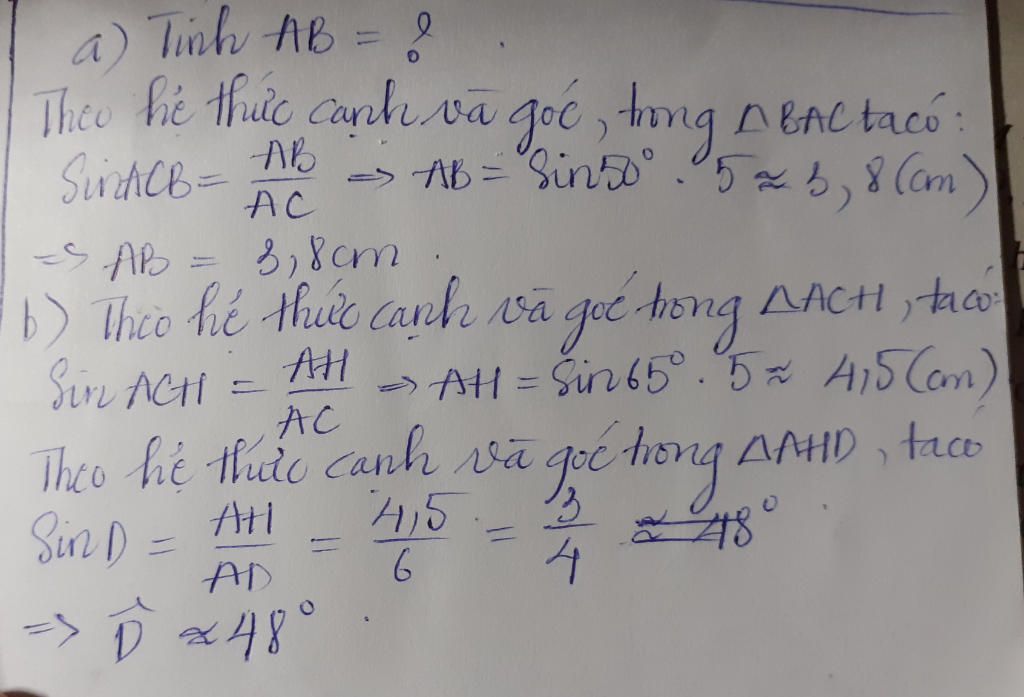 a) Tính AB = ?
Theo hệ thức cạnh và góc, trong △BAC ta có:
SinACB = AB/AC => AB = Sin50° . 5 ≈ 3,8(cm)
=> AB = 3,8cm.
b) Theo hệ thức cạnh và góc trong △ACH, ta có:
Sin ACH = AH/AC => AH = Sin65° . 5 ≈ 4,5(cm)
Theo hệ thức cạnh và góc trong △AHD, ta có
Sin D = AH/AD = 4,5/6 = 3/4 ≈ 48°
=> D̂ ≈ 48°.